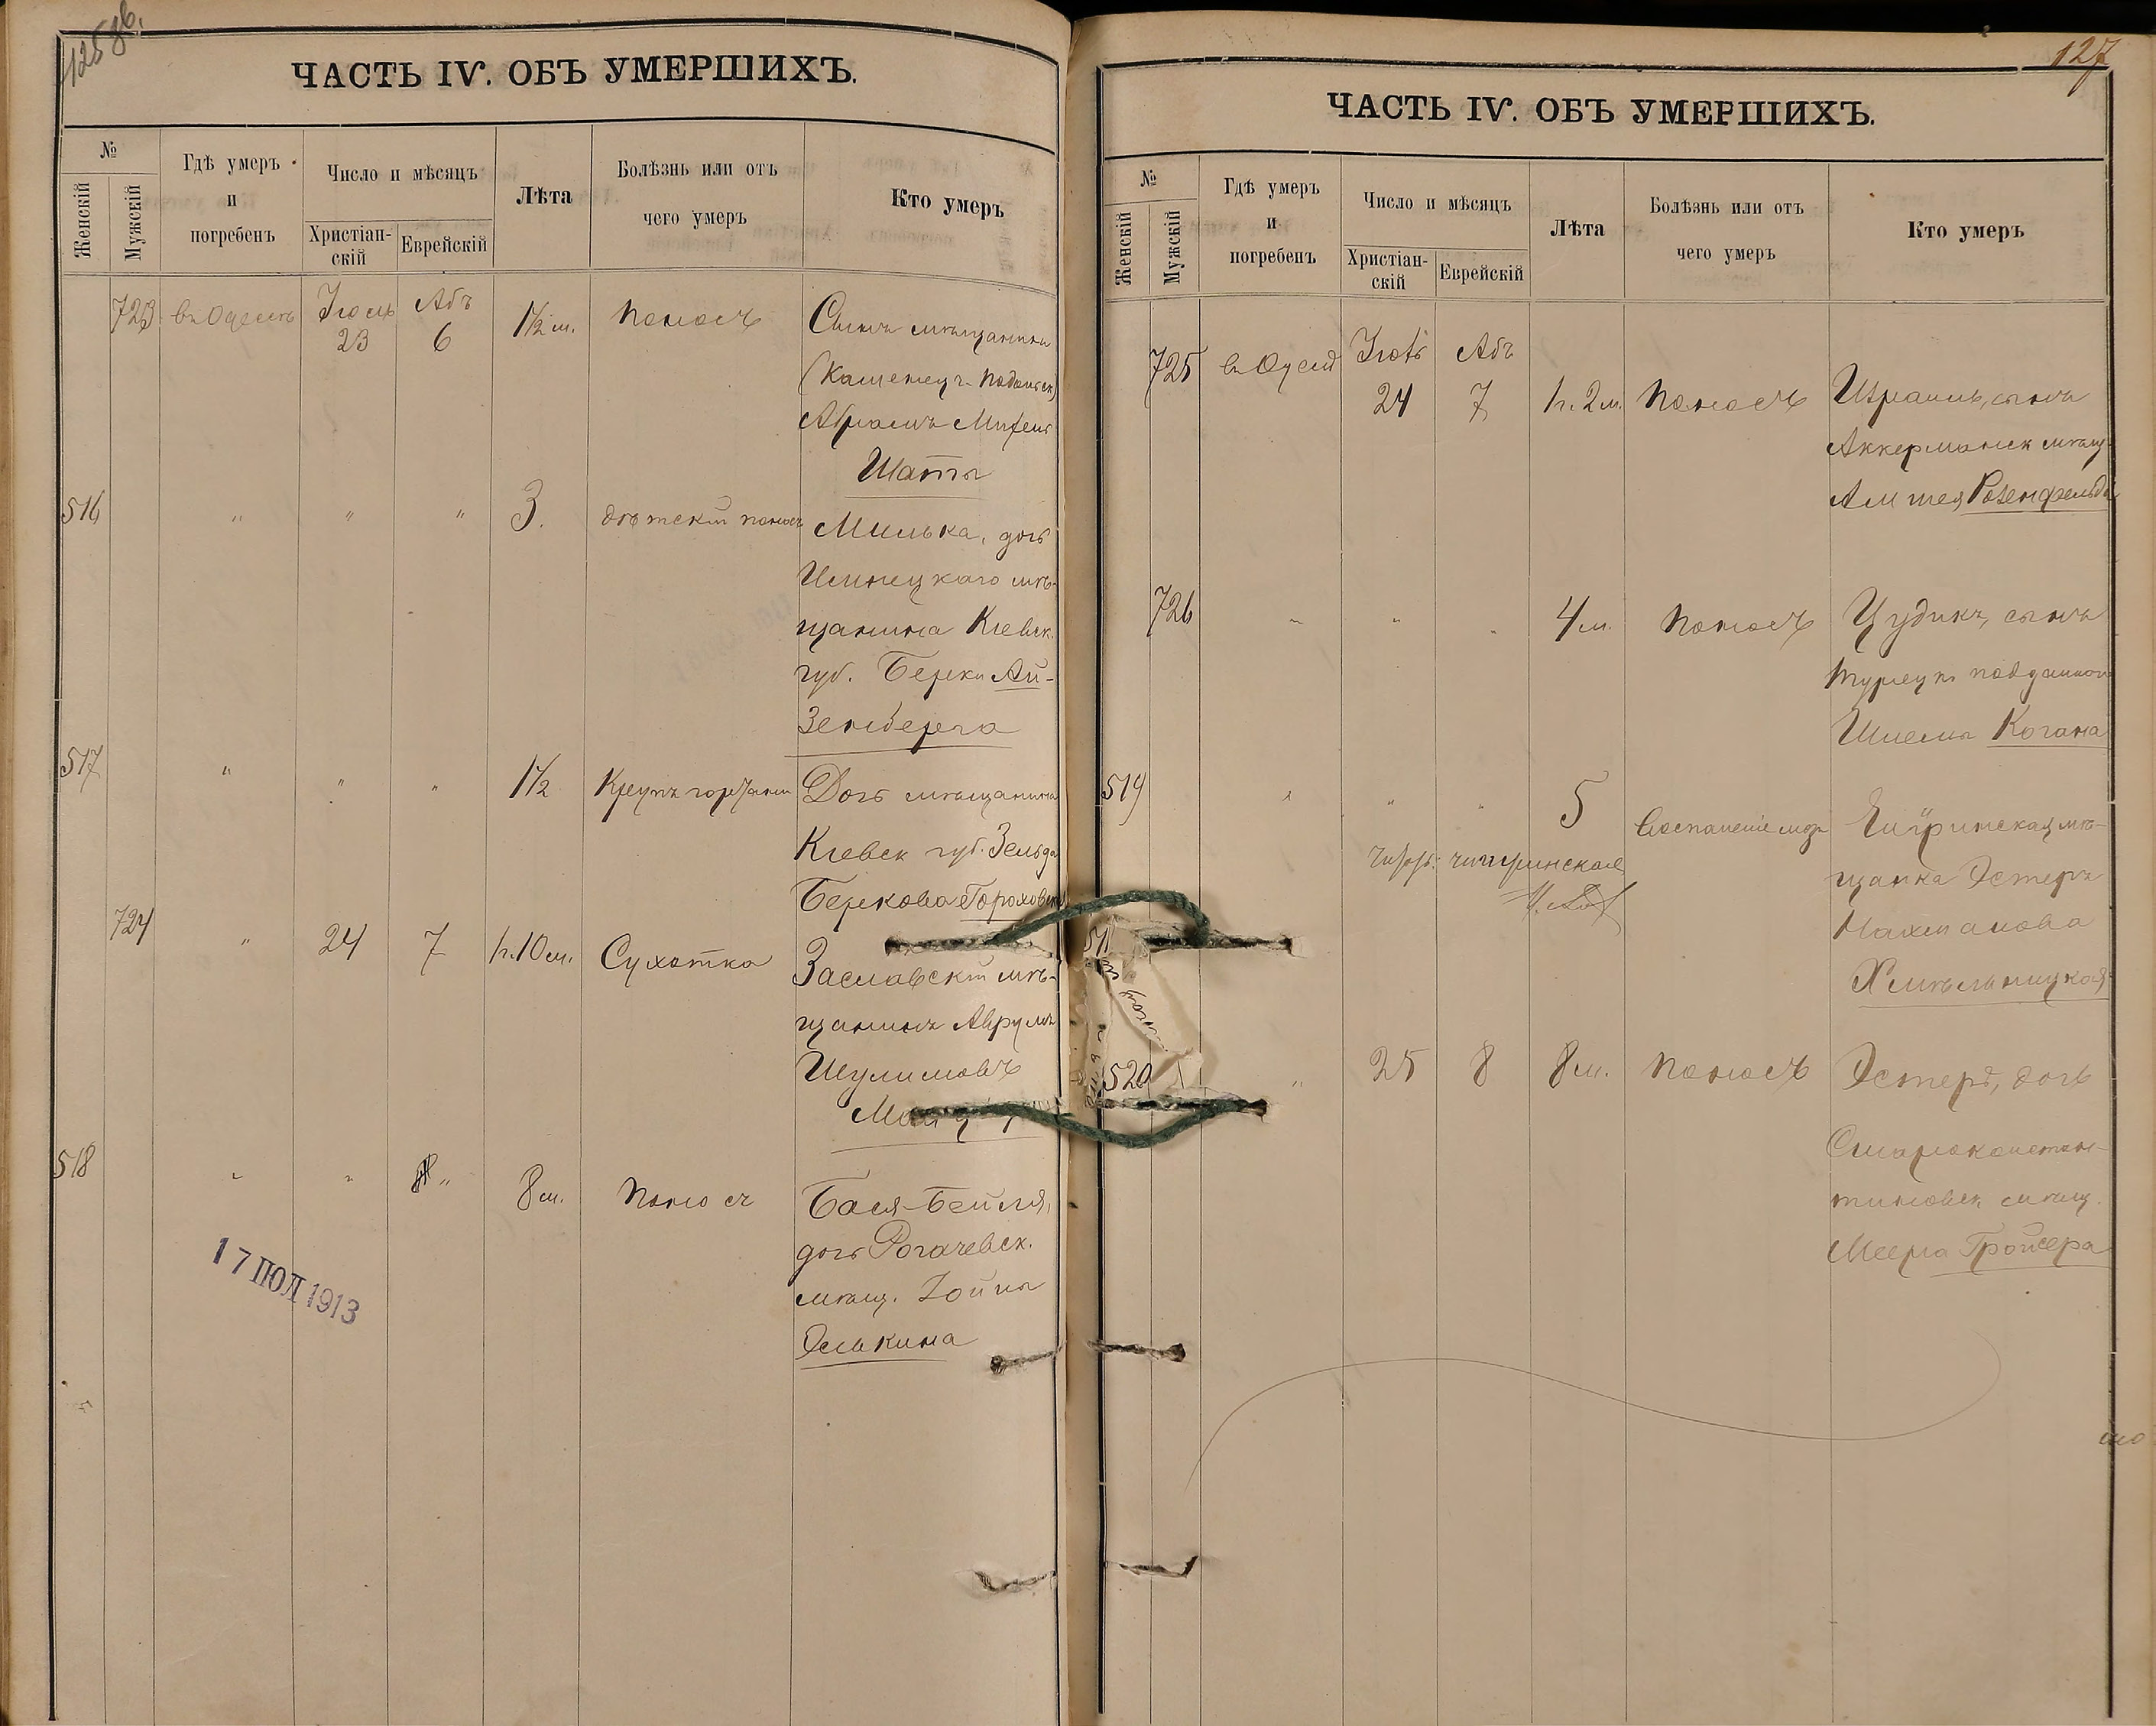 ЧАСТЬ IV. ОБЪ УМЕРШИХЪ.
№
Женскій
Мужскій
Гдѣ умеръ
и
погребенъ
Число и мѣсяцъ
Христіан-
скій
Еврейскій
Лѣта
Болѣзнь или отъ
чего умеръ
Кто умеръ
723 въ Одессѣ Іюль 23 Абъ 6 1½ м. Поносъ Сынъ мѣщанина
(Каменецъ-Подольск)
Абрамъ
516 " " " 3. дѣтскій поносъ Милька, дочь
мѣ-
щанина Кіевск.
губ. Берки Ай-
зенберга
517 " " " 1½ Крупъ гортани Дочь мѣщанина
Кіевск губ. Зельда
Беркова Гороховск
724 " 24 7 1 г. 10 м. Сухотка Заславскій мѣ-
щанинъ Аврумъ
Шулимовъ
518 " " 8 " 8 м. Поносъ Бася-Бейля,
дочь Рогачевск.
мѣщ.
Элькина
17 ІЮЛ 1913
127
ЧАСТЬ IV. ОБЪ УМЕРШИХЪ.
№
Женскій
Мужскій
Гдѣ умеръ
и
погребенъ
Число и мѣсяцъ
Христіан-
скій
Еврейскій
Лѣта
Болѣзнь или отъ
чего умеръ
Кто умеръ
725 въ Одессѣ 24 Абъ 7 1 г. 2 м. Поносъ Израиль, сынъ
Аккерманск мѣщ
Розенфельда
726 " " " 4 м. Поносъ сынъ
турецк. подданнаго
Когана
519 " " " 5 Воспаленіе мозг мѣ-
чигиринская
щанка Эстеръ
Нахманова
Хмѣльницкая
520 " 25 8 8 м. Поносъ Эстеръ, дочь
Староконстан-
тиновск мѣщ.
Меера Гройсера